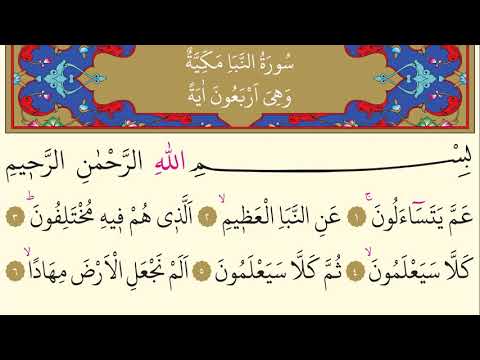 سُورَةُ النَّبَأِ مَكِّيَّةٌ
وَهِيَ اَرْبَعُونَ اٰيَةً
بِسْمِ اللّٰهِ الرَّحْمٰنِ الرَّحِيمِ
عَمَّ يَتَسَٓاءَلُونَۚ ﴿١﴾ عَنِ النَّبَأِ الْعَظِيمِۙ ﴿٢﴾ اَلَّذ۪ي هُمْ ف۪يهِ مُخْتَلِفُونَۜ ﴿٣﴾
كَلَّا سَيَعْلَمُونَۙ ﴿٤﴾ ثُمَّ كَلَّا سَيَعْلَمُونَ ﴿٥﴾ اَلَمْ نَجْعَلِ الْاَرْضَ مِهَادًاۙ ﴿٦﴾